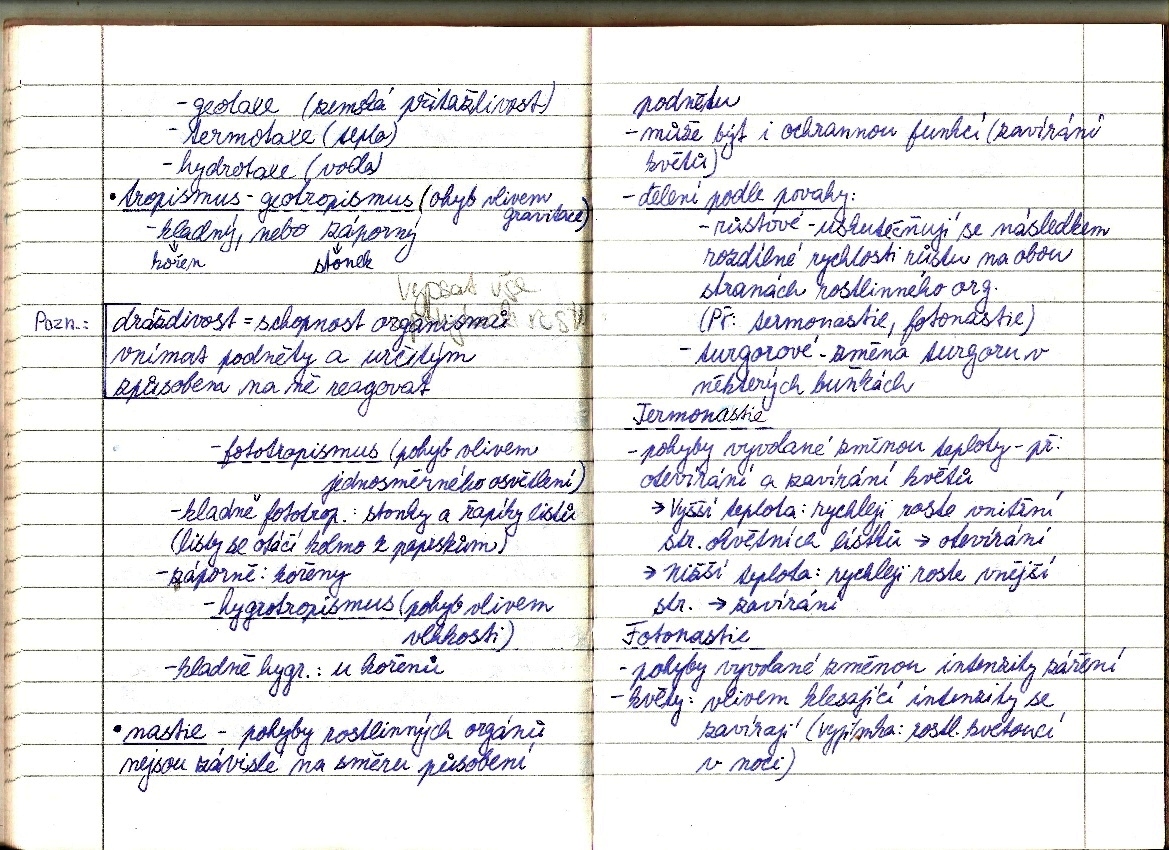 - geotaxe (zemská přitažlivost)
- termotaxe (teplo)
- hydrotaxe (voda)
• tropismus - geotropismus (ohyb vlivem
gravitace)
- kladný, nebo záporný
kořen stonek
vypsat vše
Pozn.: dráždivost = schopnost organismů
vnímat podněty a určitým
způsobem na ně reagovat
- fototropismus (pohyb vlivem
jednosměrného osvětlení)
- kladně fototrop.: stonky a řapíky listů
(listy se otáčí kolmo k paprskům)
- záporně: kořeny
- hygrotropismus (pohyb vlivem
vlhkosti)
- kladně hygr.: u kořenů
• nastie - pohyby rostlinných orgánů
nejsou závislé na směru působení
podnětu
- může být i ochrannou funkcí (zavírání
květů)
- dělení podle povahy:
- růstové - uskutečňují se následkem
rozdílné rychlosti růstu na obou
stranách rostlinného org.
(Př: termonastie, fotonastie)
- turgorové - změna turgoru v
některých buňkách
Termonastie
- pohyby vyvolané změnou teploty - př:
otevírání a zavírání květů
→ Vyšší teplota: rychleji roste vnitřní
str. okvětních lístků → otevírání
→ Nižší teplota: rychleji roste vnější
str. → zavírání
Fotonastie
- pohyby vyvolané změnou intenzity záření
- květy: vlivem klesající intenzity se
zavírají (výjimka: rostl. kvetoucí
v noci)